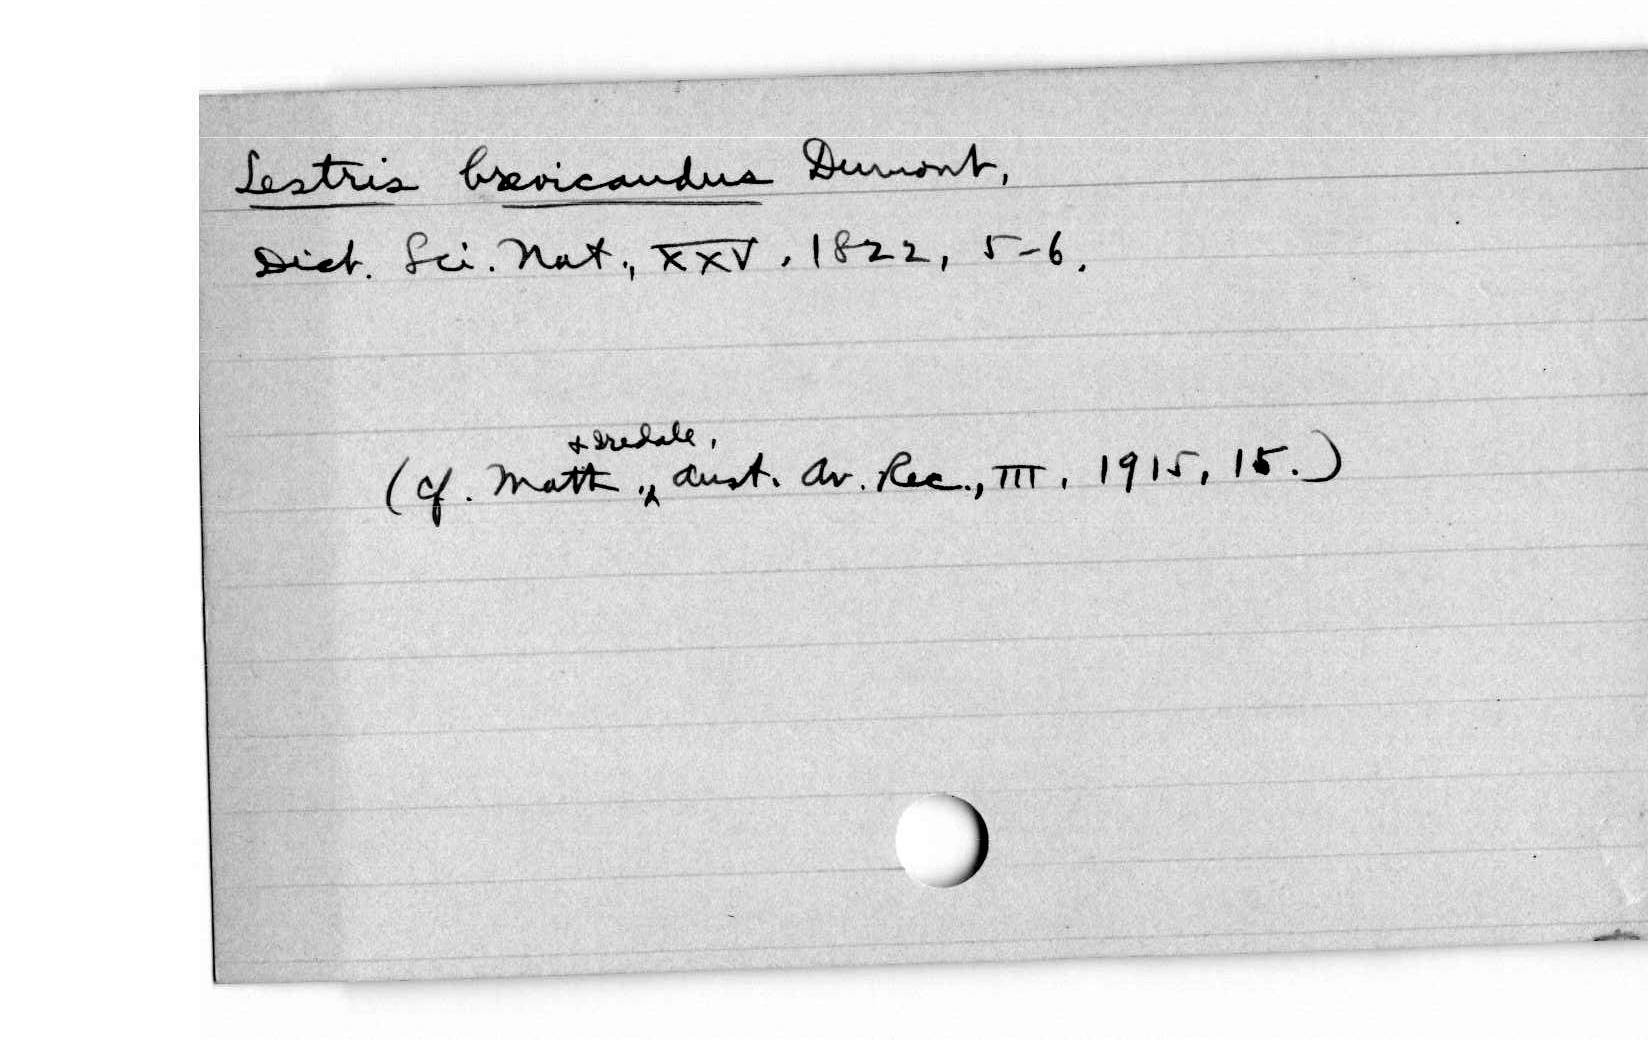 Lestris brevicaudus Dumont,
Dict. Sci. Nat., XXV, 1822, 5-6.
& Iredale,
(cf. Math., Aust. Av. Rec., III, 1915, 15.)